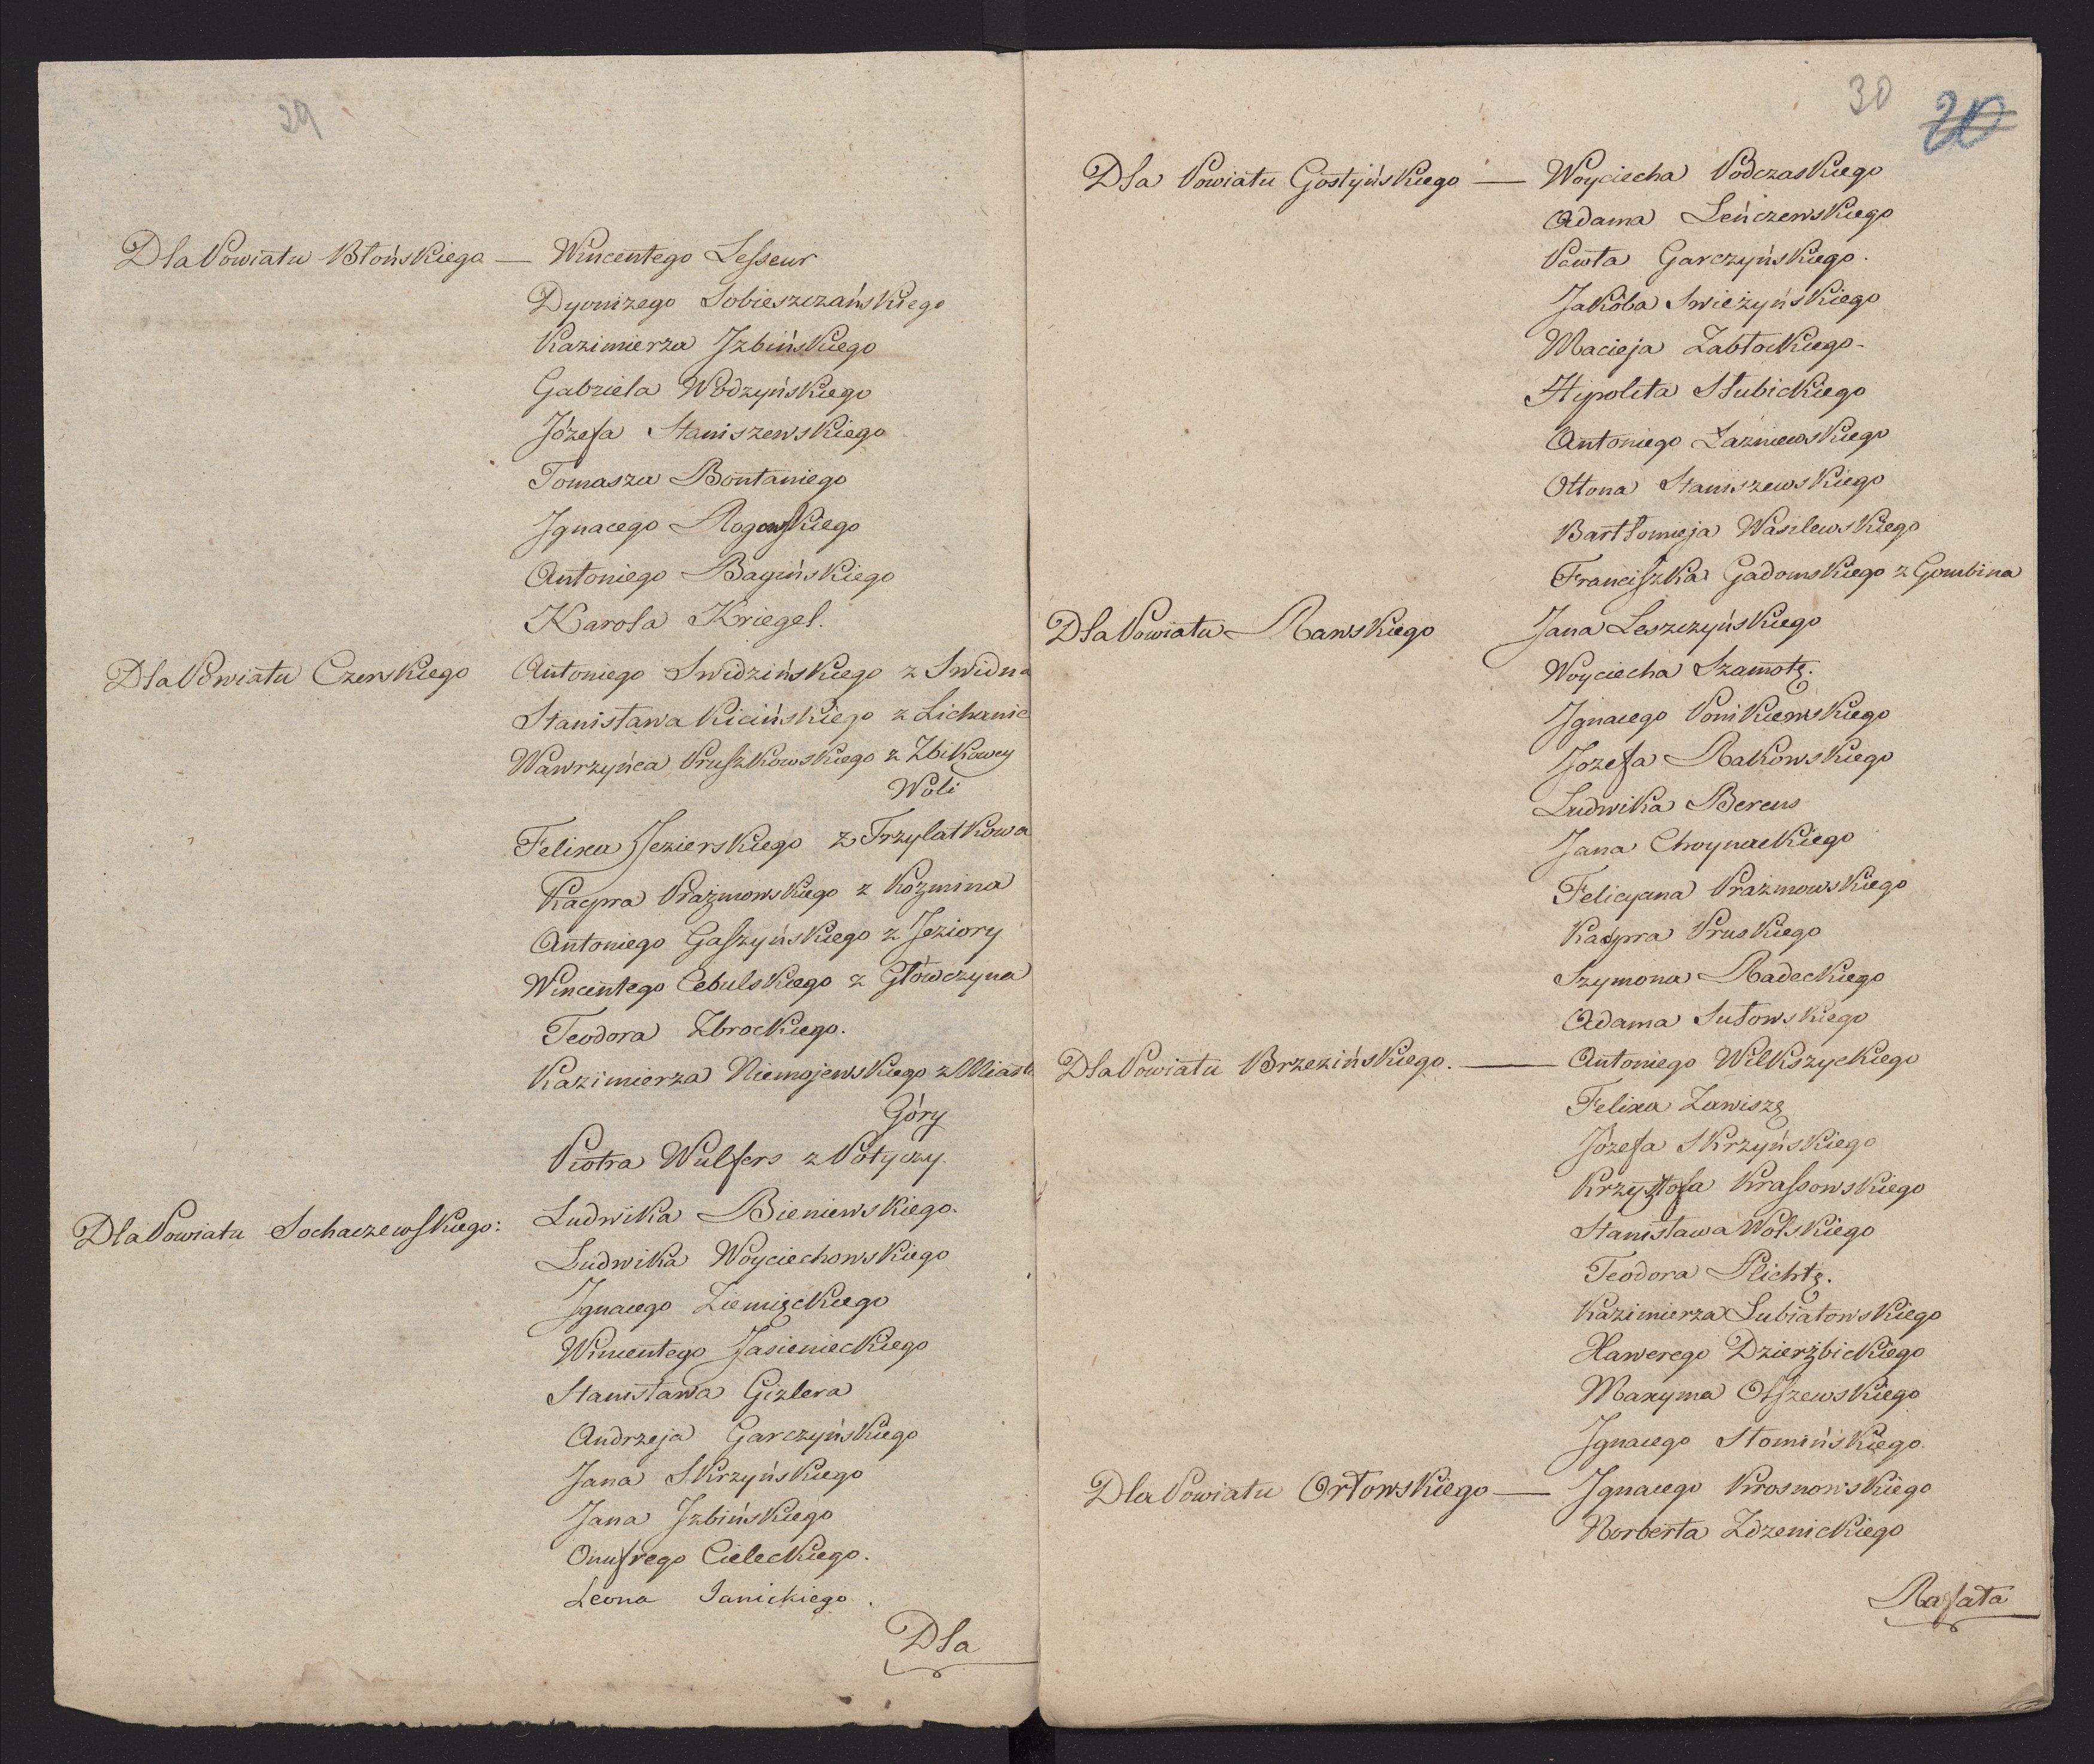 29
Dla Powiatu Błońskiego — Wincentego Lesseur
Dyonizego Sobieszczańskiego
Kazimierza Jzbińskiego
Gabriela Wodzyńskiego
Józefa Staniszewskiego
Tomasza Bontaniego
Jgnacego Rogowskiego
Antoniego Bagińskiego
Karola Kriegel.
Dla Powiatu Czerskiego Antoniego Swidzińskiego z Swidna
Stanisława Kicińskiego z Lichanic
Wawrzyńca Pruszkowskiego z Zbikowey
Woli
Felixa Jezierskiego z Trzylatkowa
Kacpra Prażmowskiego z Koźmina
Antoniego Gaszyńskiego z Jeziory
Wincentego Cebulskiego z Główczyna
Teodora Zbrockiego.
Kazimierza Niemojewskiego z Miasta
Góry
Piotra Wulfers z Potyczy.
Dla Powiatu Sochaczewskiego: Ludwika Bieniewskiego.
Ludwika Woyciechowskiego
Jgnacego Ziemięckiego
Wincentego Jasienieckiego
Stanisława Gizlera
Andrzeja Garczyńskiego
Jana Skrzyńskiego
Jana Jzbińskiego
Onufrego Cieleckiego.
Leona Janickiego.
Dla
30
20
Dla Powiatu Gostyńskiego — Woyciecha Podczaskiego
Adama Leńczewskiego
Pawła Garczyńskiego.
Jakóba Swieżyńskiego
Macieja Zabłockiego.
Hipolita Słubickiego
Antoniego Łaźniewskiego
Ottona Staniszewskiego
Bartłomieja Wasilewskiego
Franciszka Gadomskiego z Gombina
Dla Powiatu Rawskiego Jana Leszczyńskiego
Woyciecha Szamotę.
Jgnacego Ponikiewskiego
Jozefa Rakowskiego
Ludwika Berens
Jana Choynackiego
Felicyana Prażmowskiego
Kacpra Pruskiego
Szymona Radeckiego
Adama Sułowskiego
Dla Powiatu Brzezińskiego. — Antoniego Wilkszyckiego
Felixa Zawiszę
Józefa Skrzyńskiego
Krzysztofa Krassowskiego
Stanisława Wolskiego
Teodora Plichtę.
Kazimierza Lubiatowskiego
Xawerego Dzierżbickiego
Maxyma Olszewskiego
Jgnacego Słomińskiego.
Dla Powiatu Orłowskiego — Jgnacego Krosnowskiego
Norberta Zdzenickiego
Rafała